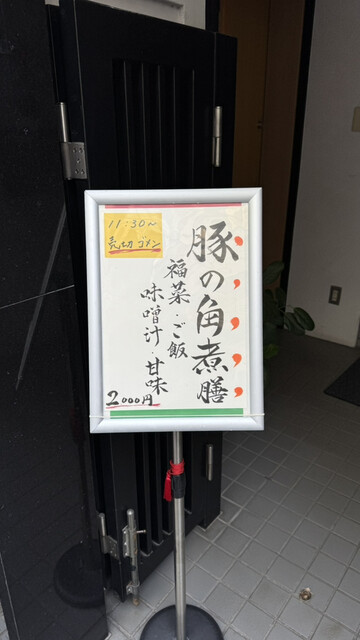 11:30〜
売切ゴメン
豚の角煮膳
福菜・ご飯
味噌汁・甘味
2000円